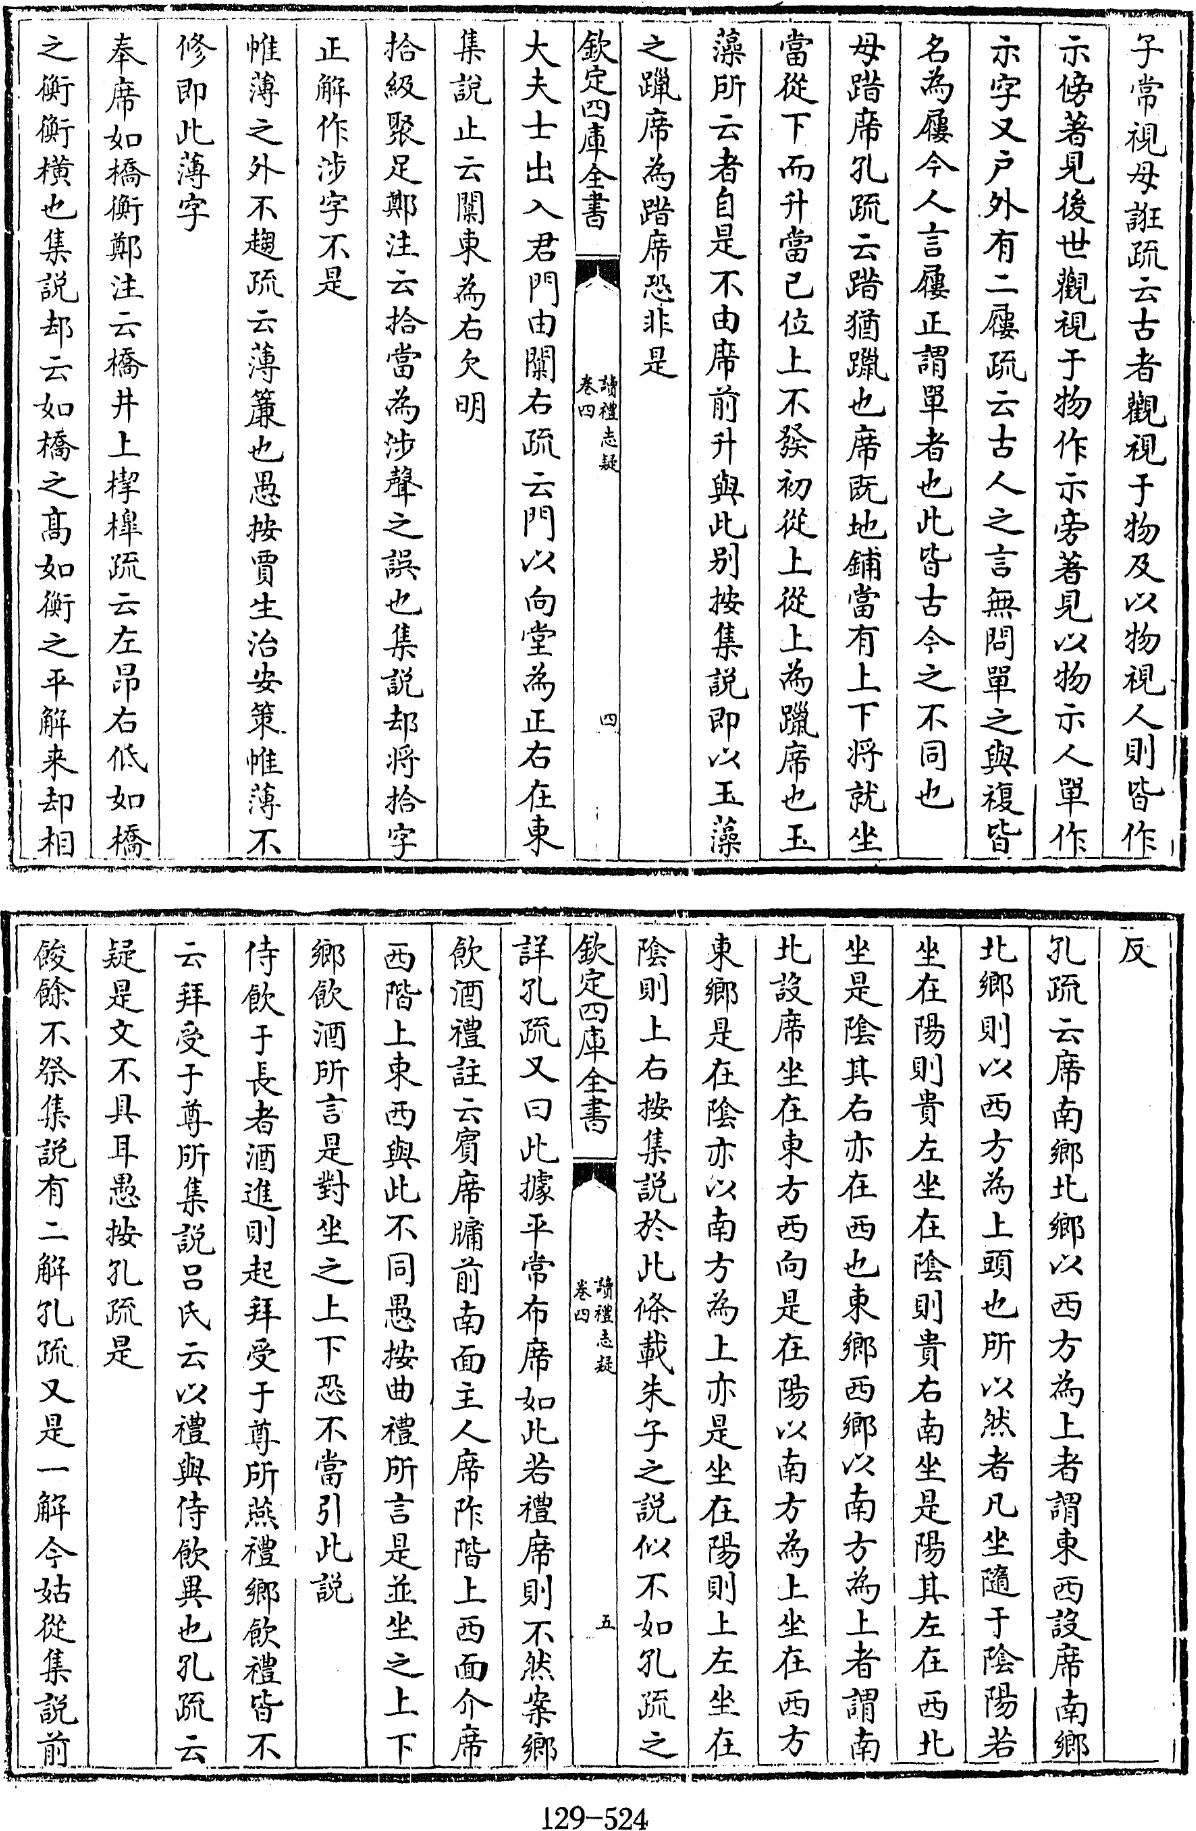 子常視毋誑疏云古者觀視于物及以物視人則皆作
示傍著見後世觀視于物作示旁著見以物示人單作
示字又户外有二屨疏云古人之言無問單之與複皆
名為屨今人言屨正謂單者也此皆古今之不同也
毋踖席孔疏云踖猶躐也席既地鋪當有上下将就坐
當從下而升當已位上不發初從上從上為躐席也玉
藻所云者自是不由席前升與此别按集說即以玉藻
之躐席為踖席恐非是
欽定四庫全書
讀禮志疑
卷四
四
大夫士出入君門由闑右疏云門以向堂為正右在東
集說止云闑東為右欠明
拾級聚足鄭注云拾當為涉聲之誤也集説却将拾字
正解作涉字不是
帷薄之外不趨疏云薄簾也愚按賈生治安策帷薄不
修即此薄字
奉席如橋衡鄭注云橋井上桿槔疏云左昂右低如橋
之衡衡横也集説却云如橋之髙如衡之平解来却相
反
孔疏云席南鄉北鄉以西方為上者謂東西設席南鄉
北鄉則以西方為上頭也所以然者凡坐隨于陰陽若
坐在陽則貴左坐在陰則貴右南坐是陽其左在西北
坐是陰其右亦在西也東鄉西鄉以南方為上者謂南
北設席坐在東方西向是在陽以南方為上坐在西方
東鄉是在陰亦以南方為上亦是坐在陽則上左坐在
陰則上右按集說於此條載朱子之說似不如孔疏之
欽定四庫全書
讀禮志疑
卷四
五
詳孔疏又曰此據平常布席如此若禮席則不然案鄉
飲酒禮註云賓席牖前南面主人席阼階上西面介席
西階上東西與此不同愚按曲禮所言是並坐之上下
鄉飲酒所言是對坐之上下恐不當引此説
侍飲于長者酒進則起拜受于尊所燕禮鄉飲禮皆不
云拜受于尊所集說吕氏云以禮與侍飲異也孔疏云
疑是文不具耳愚按孔疏是
餕餘不祭集説有二解孔疏又是一解今姑從集説前
129-524